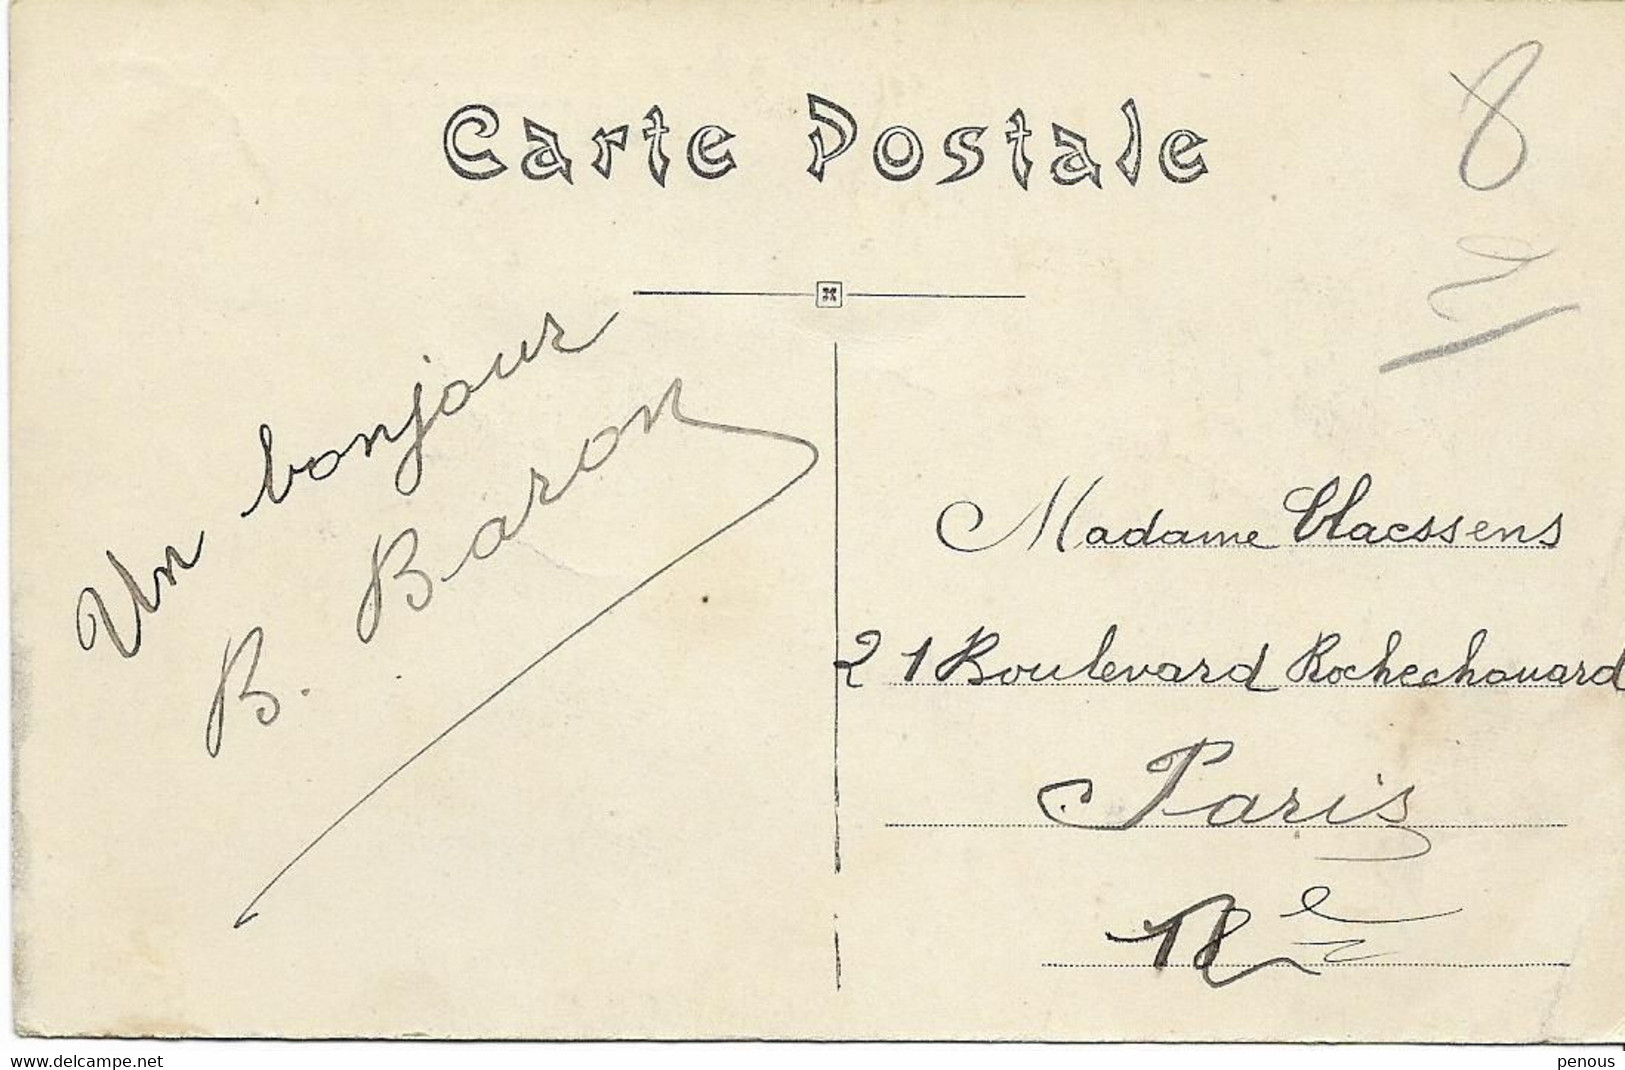 Carte Postale
8
Un bonjour
B. Baron
Madame Claessens
21 Boulevard Rochechouard
Paris
18e
www.delcampe.net
penous